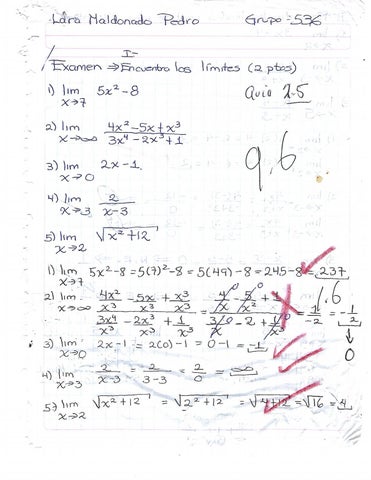 Lara Maldonado Pedro Grupo=536
I-
Examen ⇒ Encuentra los límites (2 ptos)
1) lim x→7 5x²-8 Guia 2-5
2) lim x→∞ (4x²-5x+x³)/(3x⁴-2x³+1)
9.6
3) lim x→0 2x-1
4) lim x→3 2/(x-3)
5) lim x→2 √(x²+12)
1) lim x→7 5x²-8 = 5(7)²-8 = 5(49)-8 = 245-8 = 237
1.6
2) lim x→∞ (4x²/x³ - 5x/x³ + x³/x³)/(3x⁴/x³ - 2x³/x³ + 1/x³) = = 1/-2 = -1/2
0
3) lim x→0 2x-1 = 2(0)-1 = 0-1 = -1
4) lim x→3 2/(x-3) = 2/(3-3) = 2/0 = ∞
5) lim x→2 √(x²+12) = √(2²+12) = √(4+12) = √16 = 4